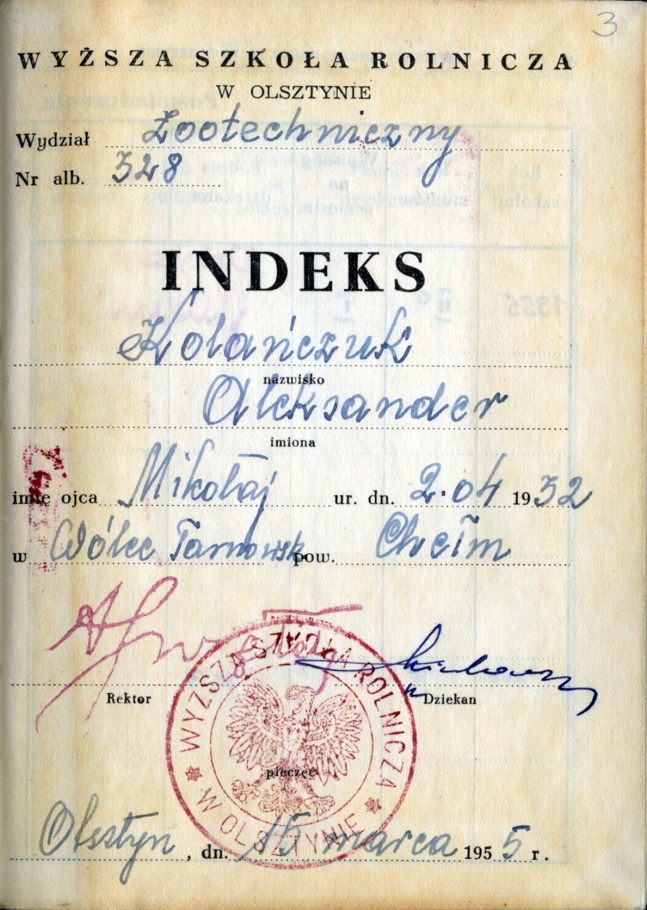 3
WYŻSZA SZKOŁA ROLNICZA
W OLSZTYNIE
Wydział Zootechniczny
Nr alb. 328
INDEKS
Kolańczuk
nazwisko
Aleksander
imiona
imię ojca Mikołaj ur. dn. 2.04 1932
w Wólce Tarnowsk. pow. Chełm
Rektor Dziekan
WYŻSZA SZKOŁA ROLNICZA
W OLSZTYNIE
pieczęć
Olsztyn, dn. 15 marca 1955 r.